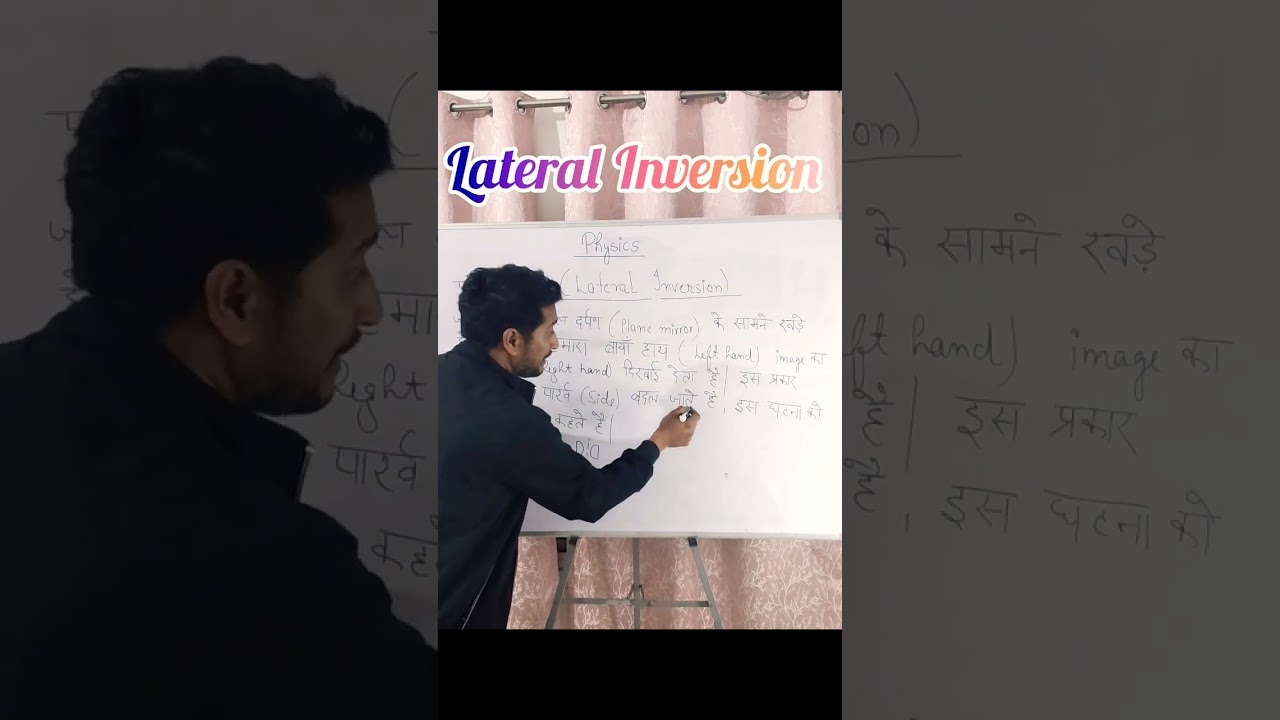 Lateral Inversion
Physics
(Lateral Inversion)
दर्पण (Plane mirror) के सामने खड़े
मारा बायाँ हाथ (Left hand) image का
Right hand) दिखाई देता है| इस प्रकार
पार्श्व (Side) बदल जाते है, इस घटना को
कहते है|